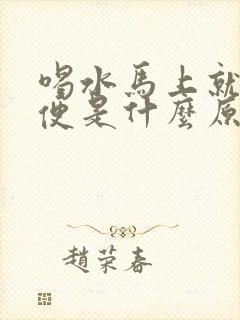 喝水馬上就
便是什麼原
趙荣春